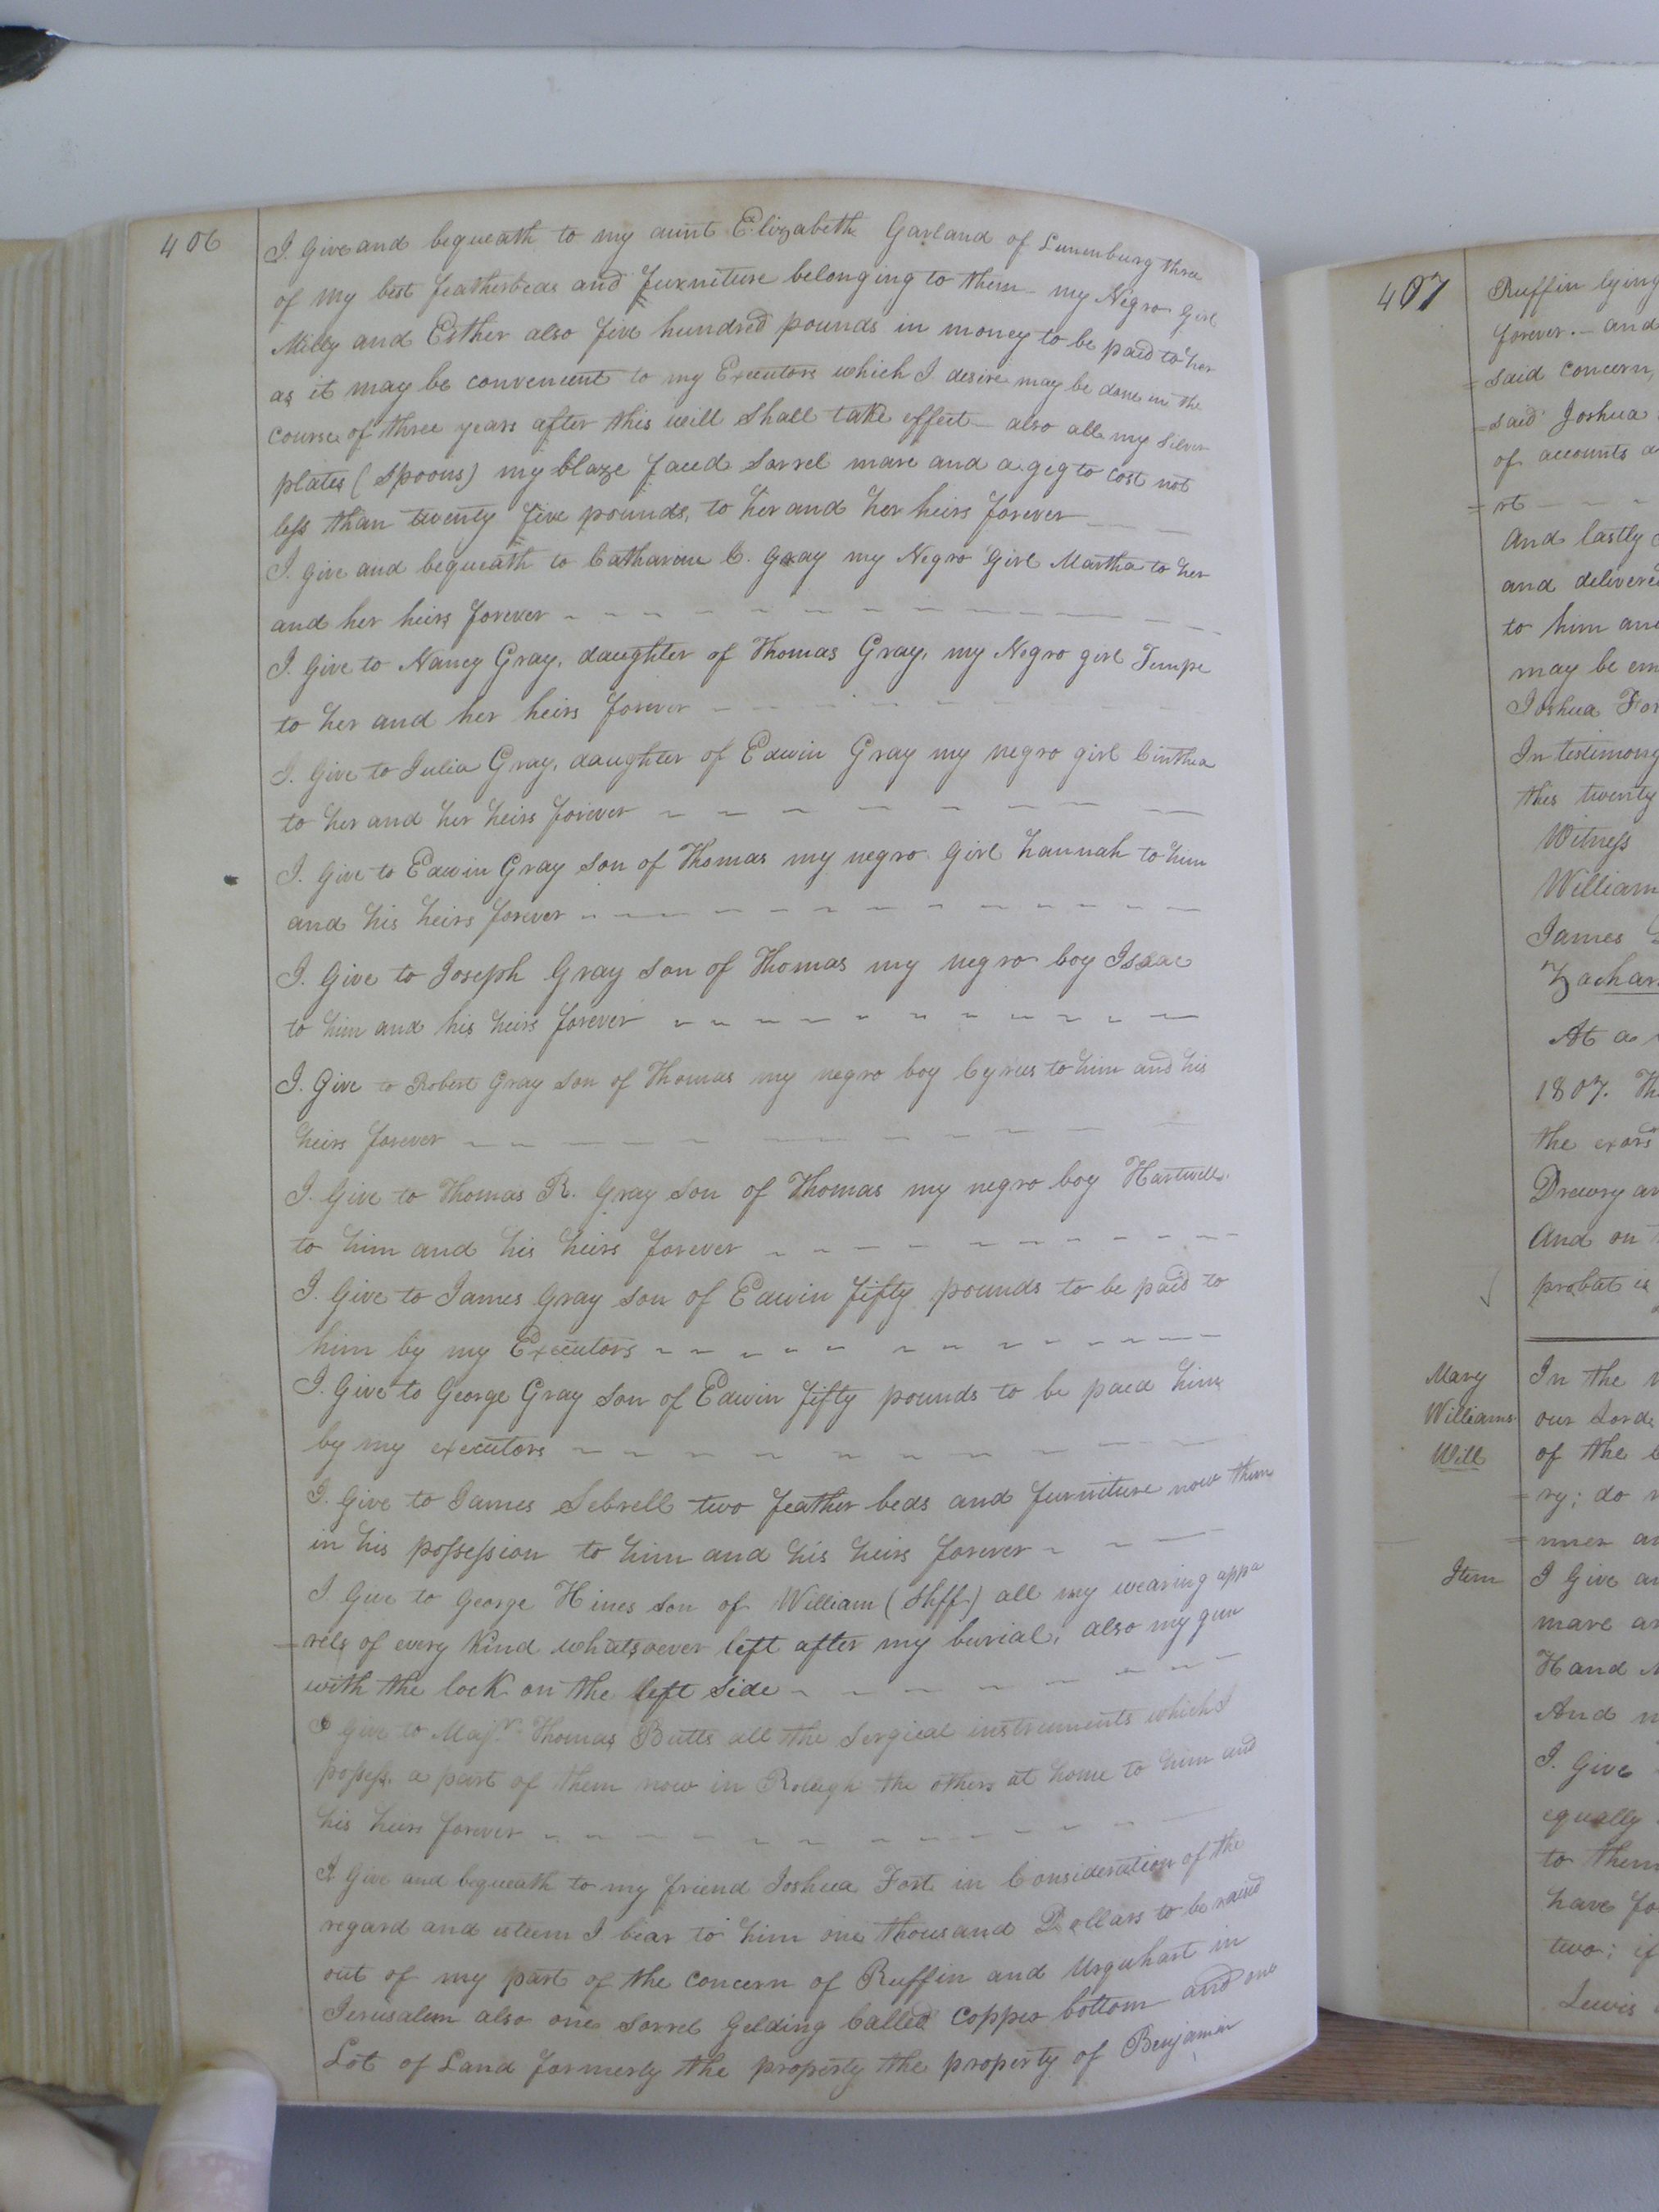 406
I Give and bequeath to my aunt Elizabeth Garland of Lunenburg three
of my best featherbeds and furniture belonging to them - my Negro Girl
Milly and Esther also five hundred pounds in money to be paid to her
as it may be convenient to my Executors which I desire may be done in the
course of three years after this will shall take effect - also all my Silver
plates (Spoons) my blaze faced Sorrel mare and a gig to cost not
less than twenty five pounds, to her and her heirs forever
I give and bequeath to Catharine C. Gray my Negro Girl Martha to her
and her heirs forever
I Give to Nancy Gray, daughter of Thomas Gray, my Negro girl Tempe
to her and her heirs forever
I Give to Julia Gray, daughter of Edwin Gray my negro girl Cinthea
to her and her heirs forever
I Give to Edwin Gray son of Thomas my negro Girl hannah to him
and his heirs forever
I Give to Joseph Gray son of Thomas my negro boy Isaac
to him and his heirs forever
I Give to Robert Gray son of Thomas my negro boy Cyrus to him and his
heirs forever
I Give to Thomas R. Gray son of Thomas my negro boy Hartwell
to him and his heirs forever
I Give to James Gray son of Edwin fifty pounds to be paid to
him by my Executors
I Give to George Gray son of Edwin fifty pounds to be paid him
by my executors
I Give to James Sebrell two feather beds and furniture now them
in his possession to him and his heirs forever
I Give to George Hines son of William (Shff) all my wearing appa
=rels of every kind whatsoever left after my burial, also my gun
with the lock on the left side
I Give to Majr. Thomas Butts all the Sergical instruments which I
possess. a part of them now in Raleigh the others at home to him and
his heirs forever
I Give and bequeath to my friend Joshua Fort in Consideration of the
regard and esteem I bear to him one thousand Dollars to be raised
out of my part of the concern of Ruffin and Urquhart in
Jerusalem also one sorrel Gelding Called Copper bottom and one
Lot of Land formerly the property the property of Benjamin
407
Ruffin lying
forever. - and
=said concern,
=said Joshua
of accounts
=rt
And lastly
and delivere
to him an
may be em
Joshua For
In testimony
this twenty
Witness
William
James
Zachar
At a
1807. Th
the exors
Drewry an
And on
probat is
Mary
Williams
Will
In the
our Lord
of the
=ry; do
=nner an
Item
I Give an
mare an
Hand
And
I Give
equally
to them
have fo
two; if
Lewis